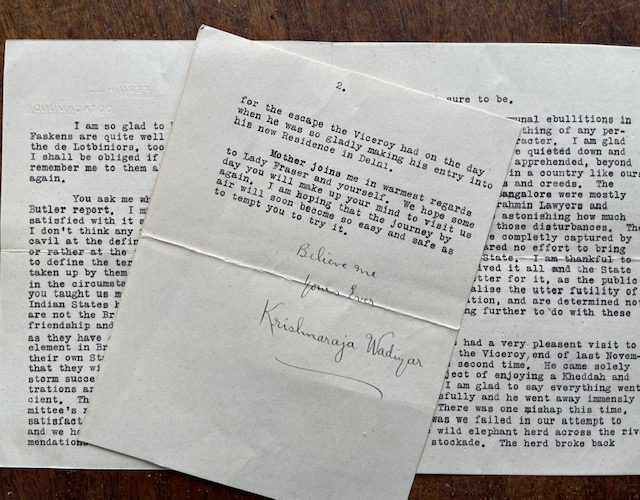 FERNHILL
OOTACAMUND
I am so glad to
Faskens are quite well
the de Lotbiniors, too
I shall be obliged if
remember me to them a
again.
You ask me wh
Butler report. I m
satisfied with it s
I don't think any
cavil at the defin
or rather at the
to define the ter
taken up by them
in the circumsta
you taught us m
Indian States
are not the Br
friendship and
as they have
element in Br
their own Sta
that they wi
storm succe
trations ar
cient. Th
mittee's r
satisfact
and we ho
mendation
2.
for the escape the Viceroy had on the day
when he was so gladly making his entry into
his new Residence in Delhi.
Mother joins me in warmest regards
to Lady Fraser and yourself. We hope some
day you will make up your mind to visit us
again. I am hoping that the journey by
air will soon become so easy and safe as
to tempt you to try it.
Believe me
Yours Ever
Krishnaraja Wadiyar
sure to be.
unal ebullitions in
thing of any per-
racter. I am glad
s quieted down and
apprehended, beyond
in a country like ours
s and creeds. The
angalore were mostly
rahmin Lawyers and
astonishing how much
those disturbances. The
e completly captured by
ared no effort to bring
State. I am thankful to
ived it all and the State
tter for it, as the public
alise the utter futility of
tion, and are determined no
ng further to do with these
had a very pleasent visit to
the Viceroy, end of last Novem-
s second time. He came solely
ject of enjoying a Kheddah and
I am glad to say everything went
sfully and he went away immensly
There was one mishap this time,
was we failed in our attempt to
wild elephant herd across the riv
stockade. The herd broke back